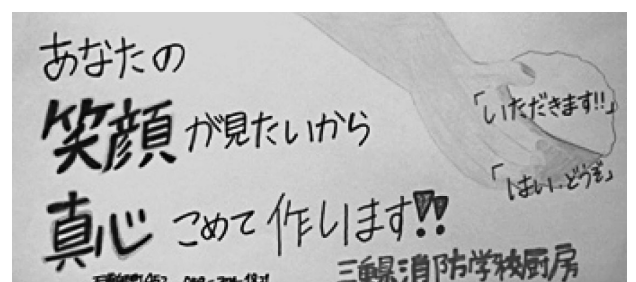 あなたの
笑顔が見たいから
真心こめて作ります!!
「いただきます!!」
「はい、どうぞ」
三重県消防学校厨房